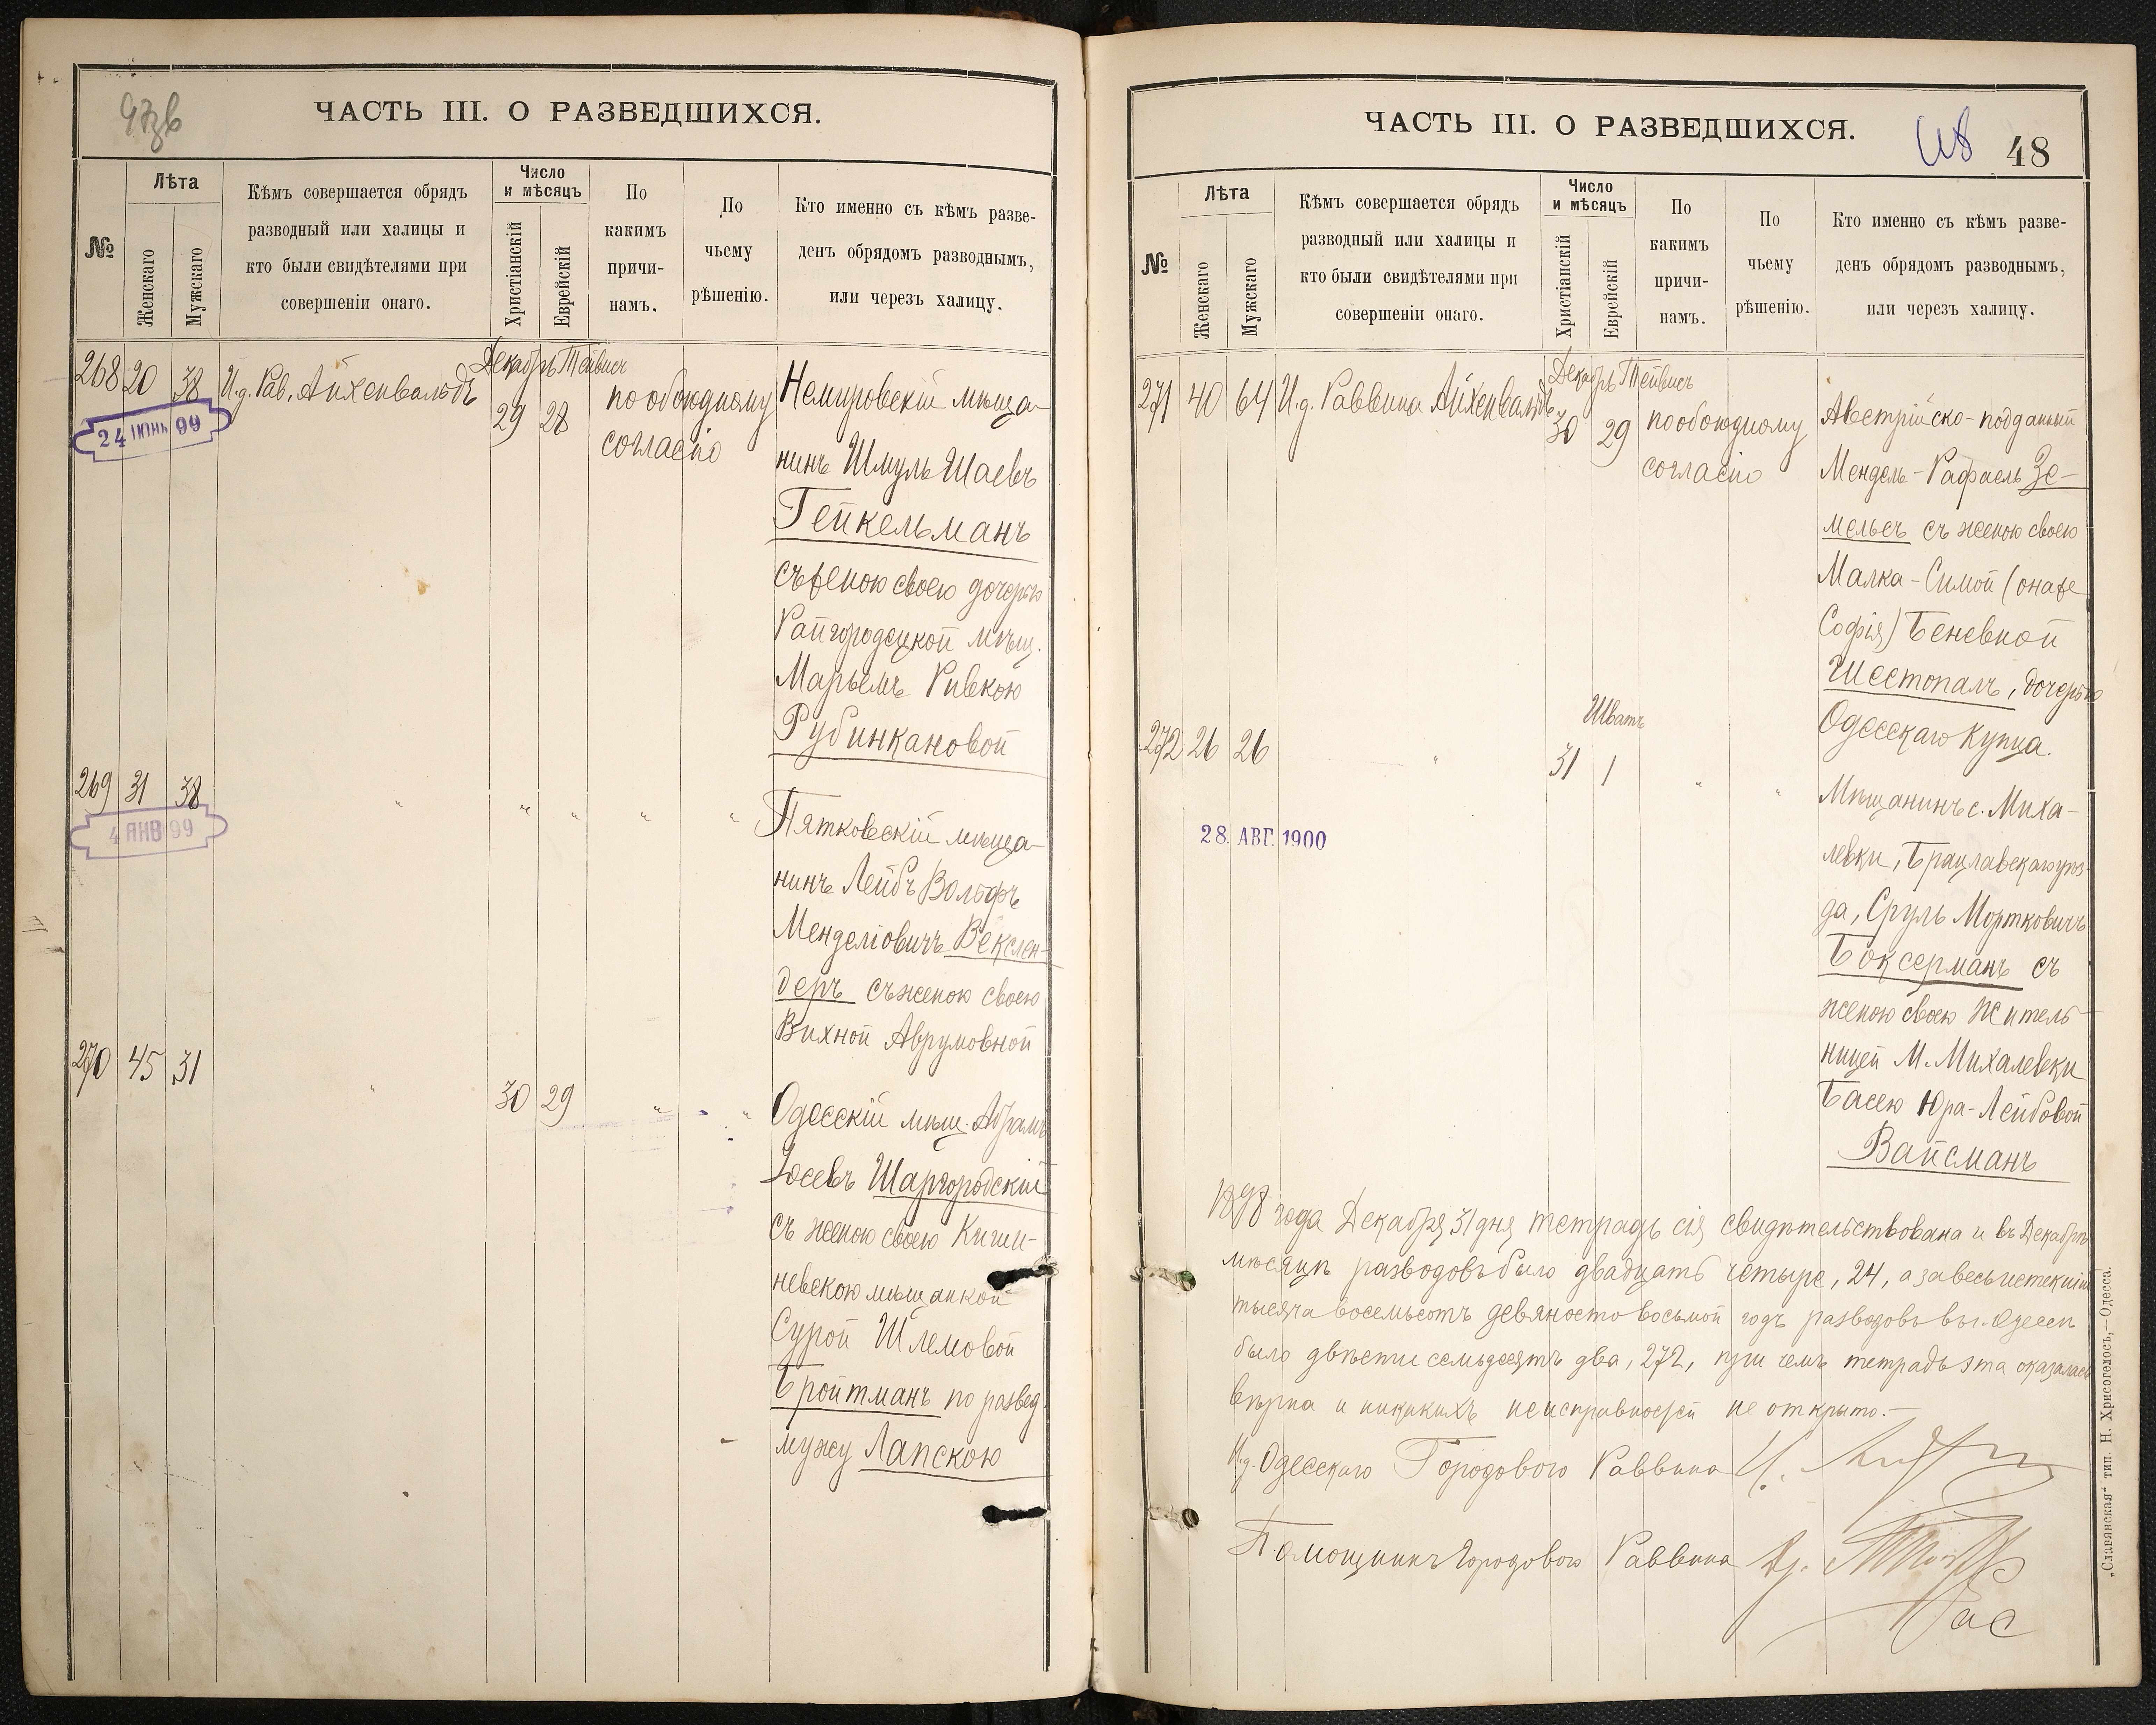 47зв
ЧАСТЬ III. О РАЗВЕДШИХСЯ.
№
Лѣта
Женскаго
Мужскаго
Кѣмъ совершается обрядъ
разводный или халицы и
кто были свидѣтелями при
совершеніи онаго.
Число
и мѣсяцъ
Христіанскій
Еврейскій
По
какимъ
причи-
намъ.
По
чьему
рѣшенію.
Кто именно съ кѣмъ разве-
денъ обрядомъ разводнымъ,
или черезъ халицу.
268 20 38 И.д. Рав. Айхенвальдъ
Декабрь Тейвисъ
29 28
по обоюдному
согласію
24 ІЮНЬ 99
Немировскій мѣща-
нинъ Шмуль Шаевъ
Гейкельманъ
съ женою своею дочерью
Райгородецкой мѣщ.
Марьемъ Ривкою
Рубинкановой
269 31 38 " " " " "
4 ЯНВ 99
Пятковскій мѣща-
нинъ Лейбъ Вольфъ
Менделіовичъ Векслен-
деръ съ женою своею
Вихной Аврумовной
270 45 31 " 30 29 " "
Одесскій мѣщ. Абрамъ
Іосевъ Шаргородскій
съ женою своею Киши-
невскою мѣщанкой
Сурой Шлемовой
Бройтманъ по развед.
мужу Лапскою
ЧАСТЬ III. О РАЗВЕДШИХСЯ.
48
№
Лѣта
Женскаго
Мужскаго
Кѣмъ совершается обрядъ
разводный или халицы и
кто были свидѣтелями при
совершеніи онаго.
Число
и мѣсяцъ
Христіанскій
Еврейскій
По
какимъ
причи-
намъ.
По
чьему
рѣшенію.
Кто именно съ кѣмъ разве-
денъ обрядомъ разводнымъ,
или черезъ халицу.
271 40 64 И.д. Раввина Айхенвальдъ
Декабрь Тейвисъ
30 29
по обоюдному
согласію
Австрійско-подданный
Мендель-Рафаель Зе-
мельсъ съ женою своею
Малка-Симой (она же
Софія) Беневной
Шестопалъ, дочерью
Одесскаго купца.
Шватъ
272 26 26 " 31 1 " "
28. АВГ. 1900
Мѣщанинъ с. Миха-
левки, Брацлавскаго уѣз-
да, Сруль Мортковичъ
Боксерманъ съ
женою своею житель-
ницей М. Михалевки
Басею Юра-Лейбовой
Вайсманъ
1898 года Декабря 31 дня тетрадь сія свидѣтельствована и въ Декабрѣ
мѣсяцѣ разводовъ было двадцать четыре, 24, а за весь истекшій
тысяча восемьсотъ девяносто восьмой годъ разводовъ въ г. Одессѣ
было двѣсти семьдесятъ два, 272, при чемъ тетрадь эта оказалась
вѣрна и никакихъ неисправностей не открыто.—
И.д. Одесскаго Городового Раввина
Помощникъ Городового Раввина
„Славянская“ тип. Н. Хрисогелосъ,—Одесса.